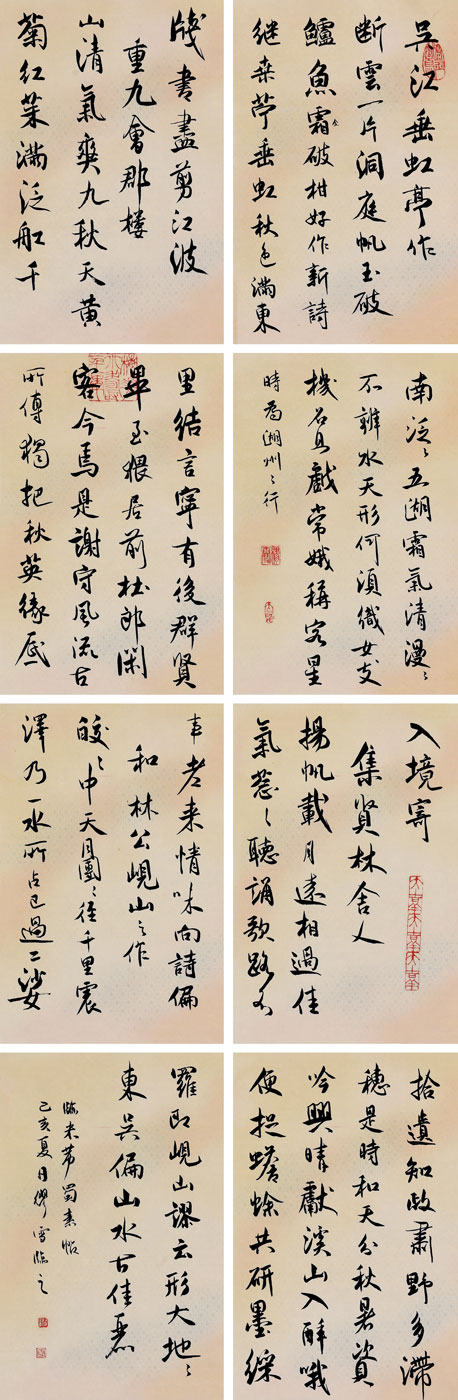 吳江垂虹亭作
斷雲一片洞庭帆玉破
鱸魚霜破柑好作新詩
金
繼桑苧垂虹秋色滿東
南泛〻五湖霜氣清漫〻
不辨水天形何須織女支
機石且戲常娥稱客星
時為湖州之行
入境寄
集賢林舍人
揚帆載月遠相過佳
氣蔥〻聽誦歌路不
拾遺知政肅野多滯
穗是時和天分秋暑資
吟興晴獻溪山入醉哦
便捉蟾蜍共研墨綵
牋書盡剪江波
重九會郡樓
山清氣爽九秋天黃
菊紅茱滿泛船千
里結言寧有後群賢
畢至猥居前杜郎閑
客今焉是謝守風流古
所傳獨把秋英緣底
事老來情味向詩偏
和林公峴山之作
皎〻中天月團〻徑千里震
澤乃一水所占已過二娑
羅即峴山謬云形大地〻
東吳偏山水古佳麗
臨米芾蜀素帖
己亥夏月繆雪臨之